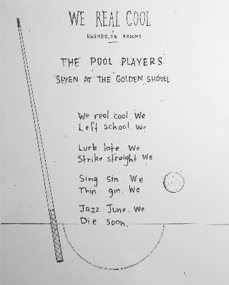 WE REAL COOL
THE POOL PLAYERS
SEVEN AT THE GOLDEN SHOVEL
We real cool We
Left school. We
Lurk late. We
Strike straight We
Sing sin. We
Thin gin. We
Jazz June. We
Die soon.